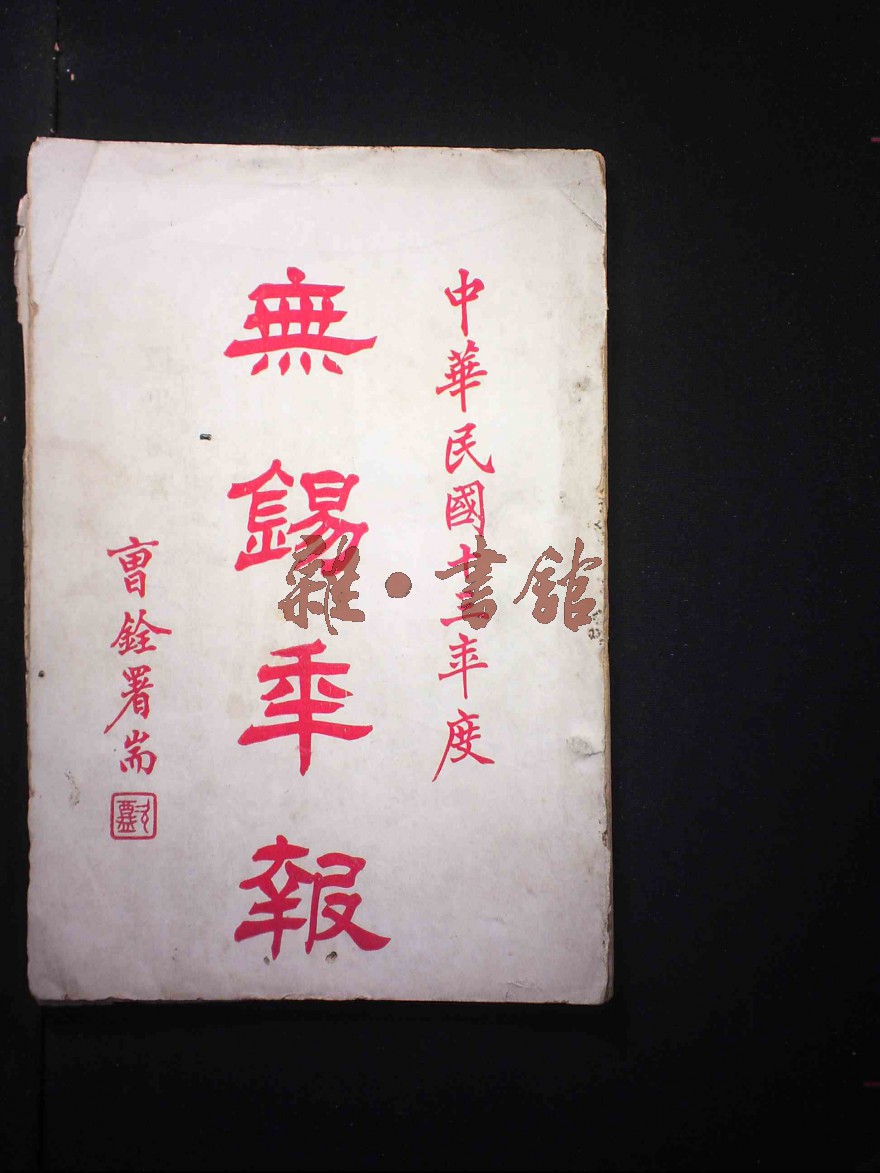 中華民國十三年度
無錫年報
曹銓署耑
雜•書館